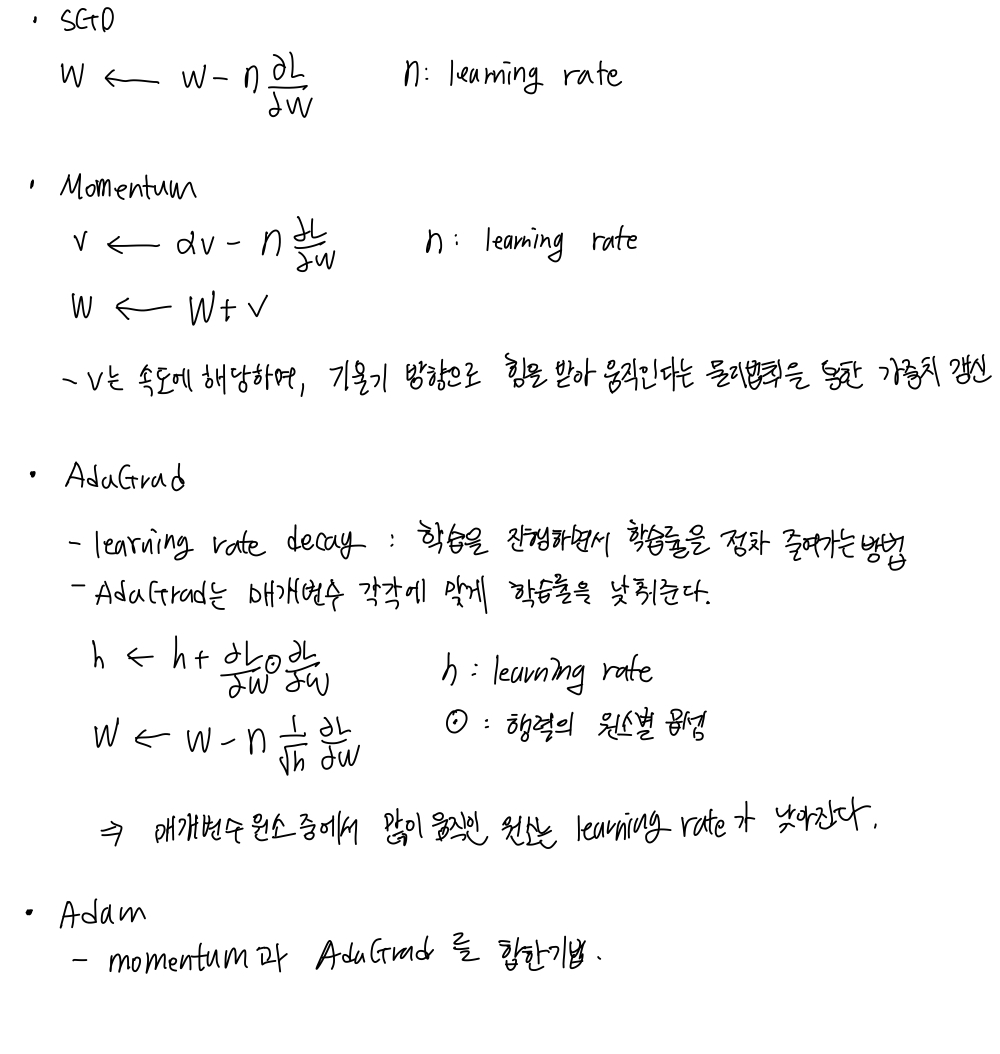 · SGD
W ← W - η ∂L/∂W    η: learning rate
· Momentum
v ← αv - η ∂L/∂W    η: learning rate
W ← W + v
- v는 속도에 해당하여, 기울기 방향으로 힘을 받아 움직인다는 물리법칙을 통한 가중치 갱신
· AdaGrad
- learning rate decay : 학습을 진행하면서 학습률을 점차 줄여가는 방법
- AdaGrad는 매개변수 각각에 맞게 학습률을 낮춰준다.
h ← h + ∂L/∂W ⊙ ∂L/∂W    h : learning rate
W ← W - η 1/√h ∂L/∂W    ⊙ : 행렬의 원소별 곱셈
⇒ 매개변수 원소 중에서 많이 움직인 원소는 learning rate가 낮아진다.
· Adam
- momentum과 AdaGrad를 합한기법.